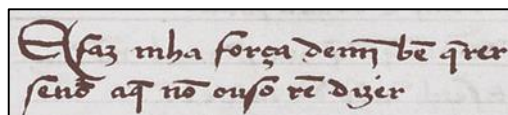 E faz mha força demĩ bẽ q̃rer
senõ aq̃ nõ ouso rẽ dizer